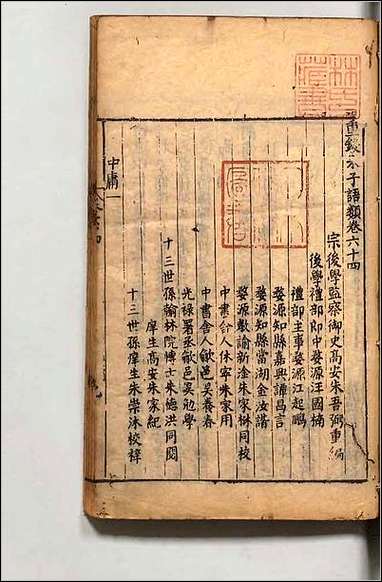 重鋟朱子語類卷六十四
宗後學監察御史高安朱吾弼重編
後學禮部郎中婺源汪國楠
禮部主事婺源江起鵬
婺源知縣嘉興譚昌言
婺源知縣常湖金汝諧
婺源教諭新淦朱家楙同校
中書舍人休寧朱家用
中書舍人歙邑吳養春
光祿署丞歙邑吳勉學
十三世孫翰林院博士朱德洪同閱
庠生高安朱家紀
十三世孫庠生朱崇沐校梓
中庸一